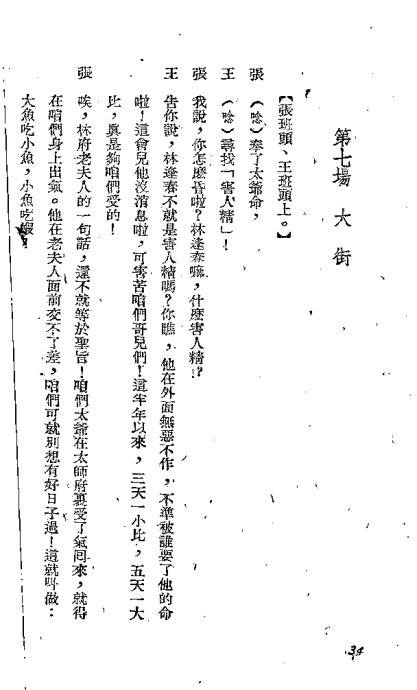 第七場　大街
【張班頭、王班頭上。】
張　（唸）奉了太爺命，
王　（唸）尋找「害人精」！
張　我說，你怎麼昏啦？林逢春嘛，什麼害人精？
王　告你說，林逢春不就是害人精嗎？你瞧，他在外面無惡不作，不準被誰要了他的命
啦！這會兒他沒消息啦，可害苦咱們哥兒們！這半年以來，三天一小比，五天一大
比，真是夠咱們受的！
張　唉，林府老夫人的一句話，還不就等於聖旨！咱們太爺在太師府裏受了氣回來，就得
在咱們身上出氣。他在老夫人面前交不了差，咱們可就別想有好日子過！這就叫做：
大魚吃小魚，小魚吃蝦！
34